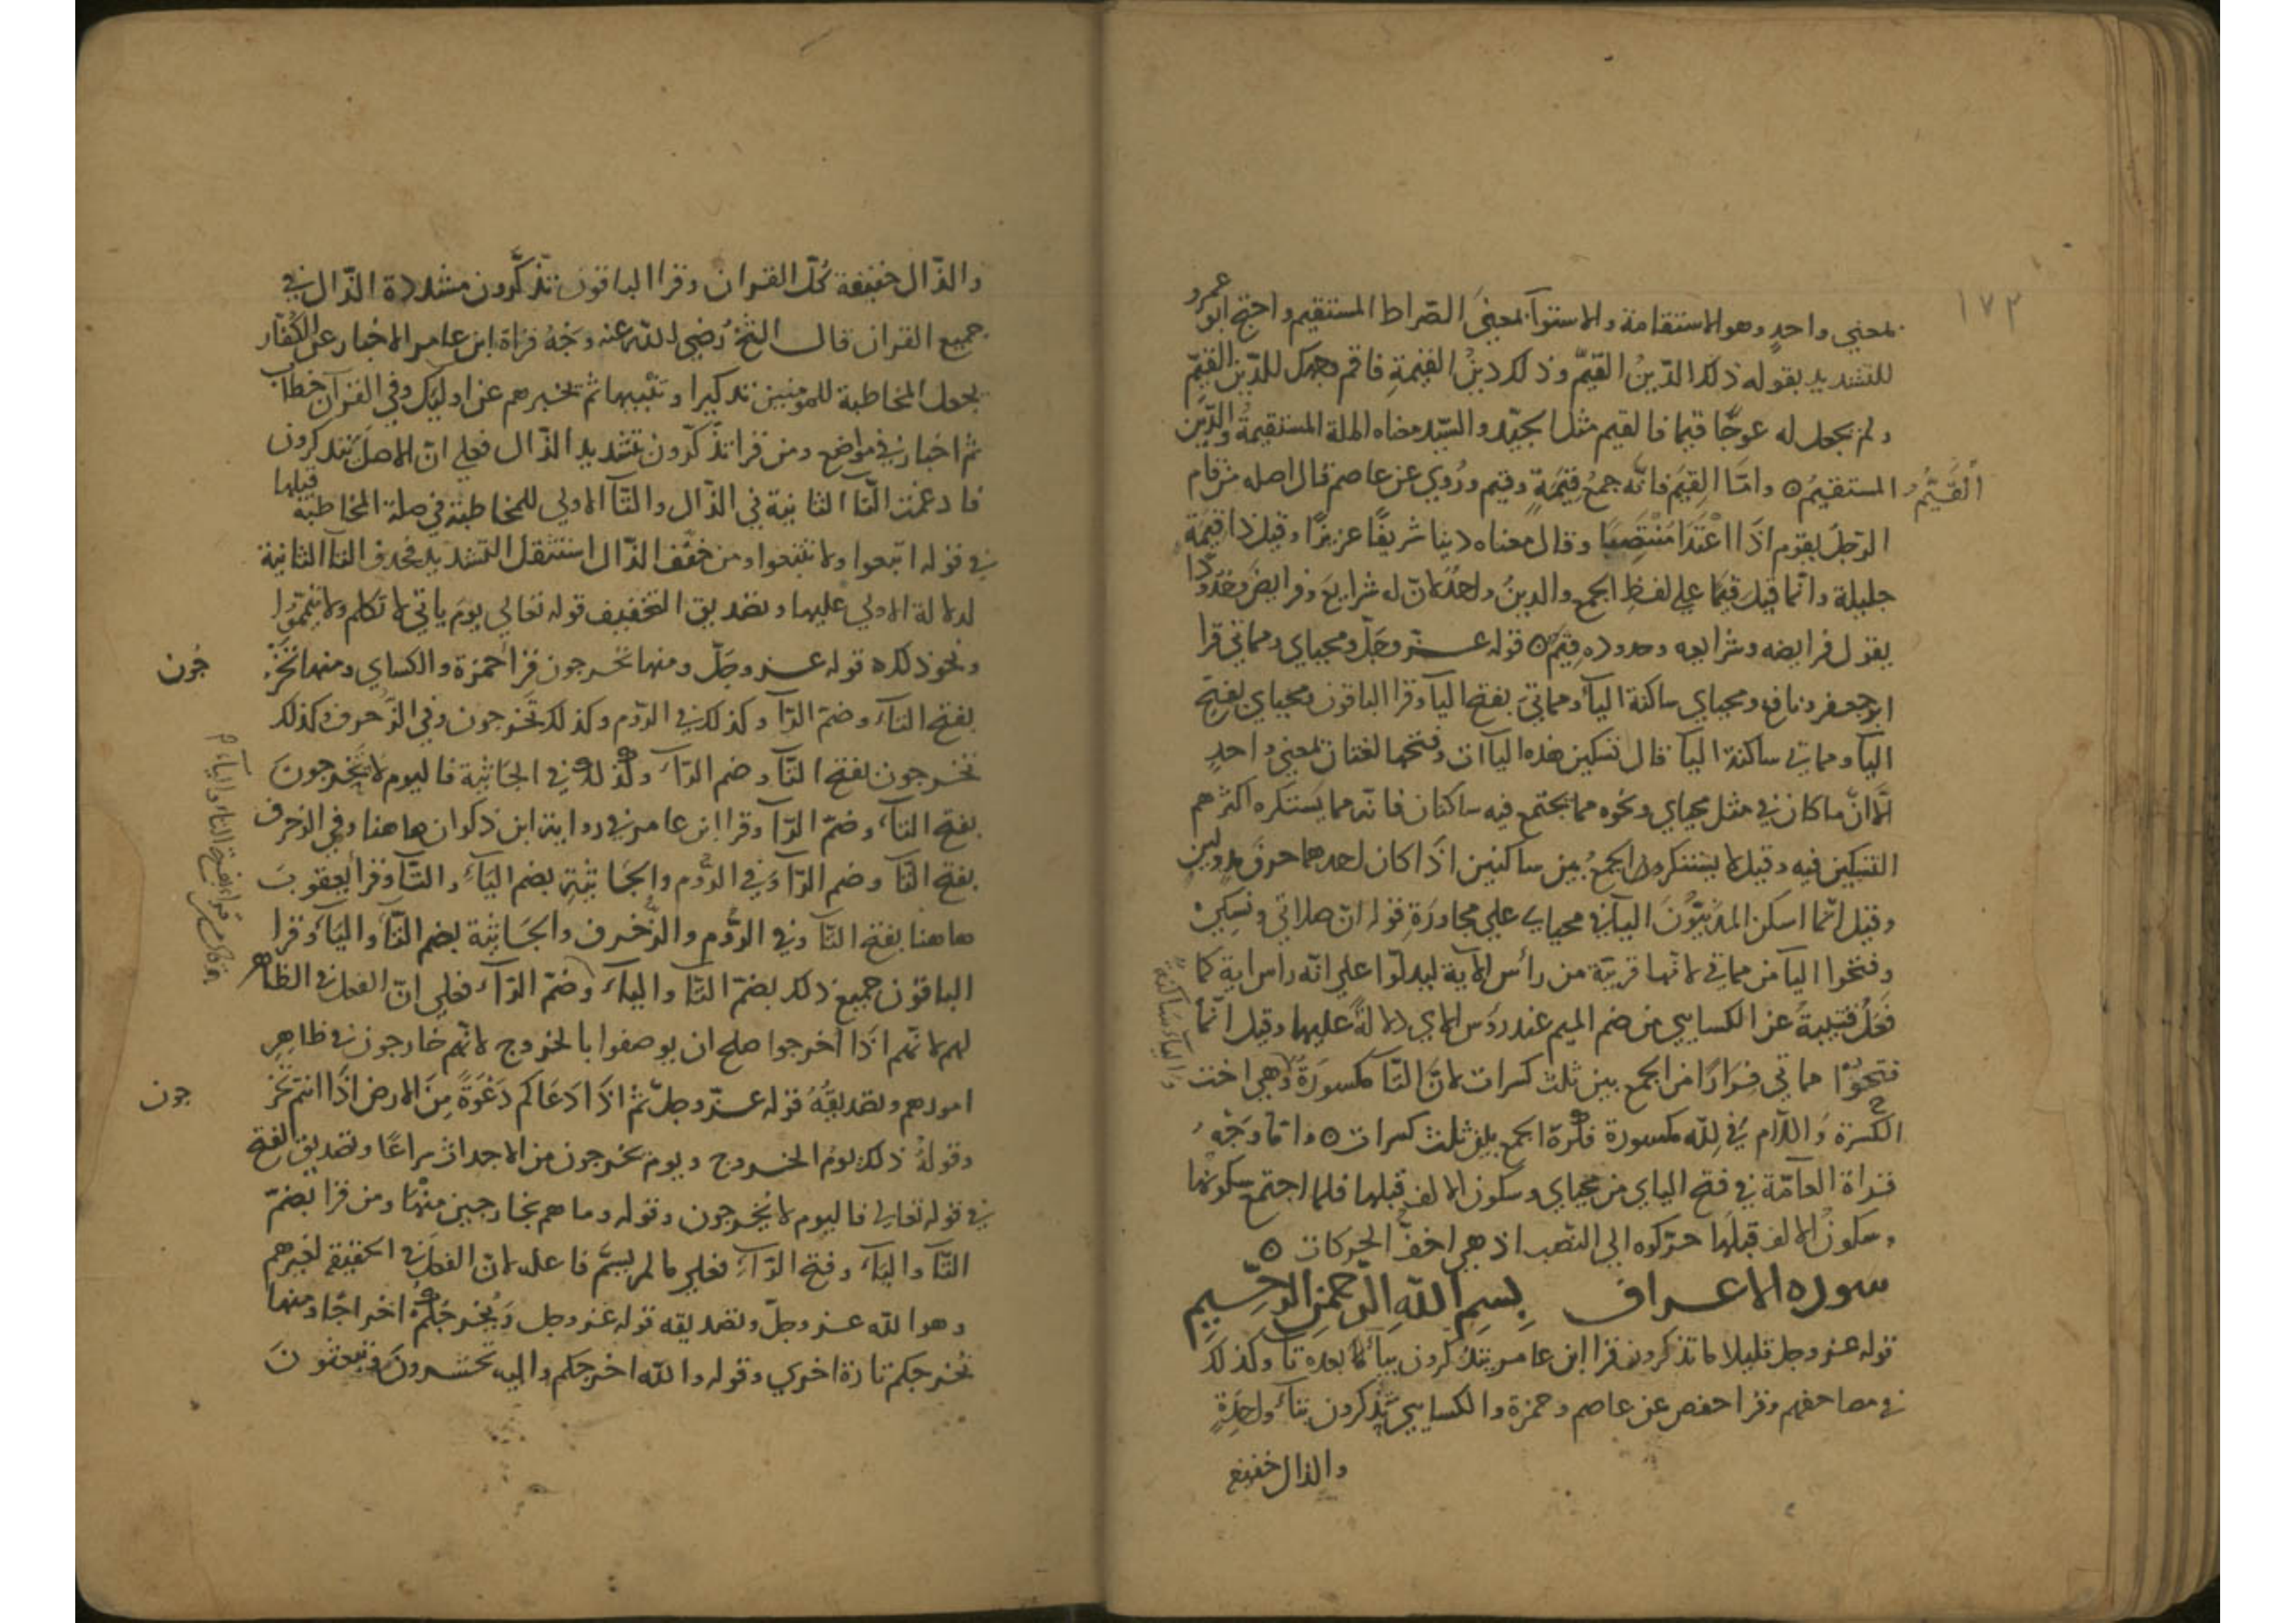 ١٧٢
بمعني واحدٍ وهو الاستقامة والاستوآ بمعنيَ الصّراط المستقيم واحتج ابو عمرو
للتشديد بقوله ذلك الدّينُ القيّم وذلك دينُ القيّمةِ فاقم وجهك للدّين القيّم
ولم يجعل له عوجًا قيما فالقيم مثل الجيّد والسّيد معناه الملة المستقيمةُ والدّين
القَيِّمُ المستقيمُ ٥ وامّا القِيَم فانّه جمعُ قِيَمةٍ وقيم ورُوي عن عاصم قال اصله من قام
الرّجل يقوم اذا اعْتَدَا مُنْتَصِبًا وقال معناه دينا شريفًا عزيزًا وقيل ذا قيمَة
جليلة وانّما قيل قِيَمًا علي لفظِ الجمع والدينُ واحدٌ لانّ له شرايعَ وفرايضَ وحُدُودًا
يقول فرايضه وشرايعه وحدوده قِيَم ٥ قوله عز وجَلّ ومحياي ومماتي قرا
ابو جعفر ونافع ومحياي ساكنة اليآ ومماتيَ بفتح اليآ وقرا الباقون محيايَ بفتح
اليآ ومماتي ساكنة اليآ قال تسكين هذه اليآات وفتحها لغتان بمعني واحدٍ
الّا انّ ما كان في مثل محياي ونحوه مما يجتمع فيه ساكنان فانّه مما يَستكره اكثرهم
التسكين فيه وقيل لا يستنكرون الجمعُ بين ساكنين اذا كان احدهما حرفَ مد ولين
وقيل انّما اسكن المدَنِيّونَ اليآ في محياي علي مجاورَةِ قوله انّ صلاتي ونسكي
وفتحوا اليآ من مماتي لانّها قريبة من رأس الآية ليدلّوا علي انّه راس اية كما
فَعَلَ قتيبةُ عن الكسايي من ضم الميم عند روَس الاي دلالةً عليها وقيل انّما
فتحوْا مماتي فِرَارًا من الجمع بين ثلث كسرات لانّ التّآ مكسورَةٌ وهي اخت
والياءِ ساكنةً
الكسْرَة وَاللّام في لِلّه مكسورة فكرهَ الجمع بين ثلث كسرات ٥ وامّا وَجْهُ
قراة العامّة في فتح الياي من محياي وسكون الالف قبلها فلما اجتمع سكونها
وسكونُ الالف قبلها حرّكوه الي النّصب اذ هي اخفّ الحركات ٥
سوره الاعراف بِسمِ اللّهِ الرّحمنِ الرّحيمِ
قوله عز وجل قليلا ما تذكرون قرا ابن عامر يتذكرون بيآ بعده تآ وكذلك
في مصاحفهم وقرا حفص عن عاصم وحمزة والكسايي تَذكرون بتآء واحِدَةٍ
والذال خفيفة
والذّال خفيفة كُلّ القران وقرا الباقون تذّكّرون مشددة الذّال في
جميع القران قال الشيخ رضي اللّه عنه وجْهُ قراة ابن عامر الاخبار عن الكُفّار
بجعل المخاطبة للمومنين تذكيرا وتنبيها ثم يخبرهم عن اوليك وفي القرآن خطاب
ثم اخبار في مواضع ومن قرا تذّكّرون بتشديد الذّال فعلي انّ الاصل تتذكرون
فادغمت التّا الثانية في الذّال والتّآ الاولي للمخاطبة في صلة المخاطبة قبلها
في قوله اتبعوا ولا تتبعوا ومن خفّف الذّال استثقل التّشديد فحذف التآ الثانية
لدلالة الاولي عليها وتصديق التخفيف قوله تعالي يوم ياتي لا تكلم ولا تيمّموا
ونحو ذلك ٥ قوله عز وجَلّ ومنها تخرجون قرأ حمزة والكساي ومنها تَخْرُ
جُون
بفتح التآء وضمّ الرّآ وكذلك في الرّوم وكذلك تخرجون وفي الزّخرف وكذلك
تخرجون بفتح التّآ وضم الرّآء وكذلك في الجَاثية فاليوم لا يَخرجونَ
بفتح اليآء وضمّ الرّآ وقرا ابن عامر في رواية ابن ذكوان هاهنا وفي الزخرف
بفتح التّآ وضم الرّآ وَفي الرُّوم والجَاثيةِ بضم اليَآء والتّآ وقرأ يعقوبَ
هاهنا بفتح التّآ وفي الرُّوم والزّخرف والجَاثية بضم التّآ واليَآء وَقرا
الباقون جميع ذلك بضمّ التّآ واليآء وضمّ الرّآء فعلي انّ الفعل في الظّاهر
لهم لانّهم اذا اخرجوا صلح ان يوصفوا بالخروج لانّهم خارجون في ظاهِر
امورهم وتصديقُهُ قوله عزّ وجلّ ثم اذَا دَعَاكم دَعْوَةً مِنَ الارض اذَا انتم تَخْر
جون
وقولُهُ ذلك يومُ الخروج ويوم يخرجون من الاجداث سراعًا وتصديق الفتح
في قوله تعالي فاليوم لا يُخرجون وقوله وما هم بخارجين منْها ومن قرا بضمّ
التّآ واليآء وفتح الرّآءِ فعلي ما لم يسَمّ فاعله لانّ الفعل في الحقيقة لغيرهم
وهو اللّه عز وجلّ وتصديقه قوله عز وجل وَيُخرجكُمْ اخراجًا ومنها
نُخرجكم تارة اخري وقوله واللّه اخرجكم واليه تحشرونَ وتبعثونَ